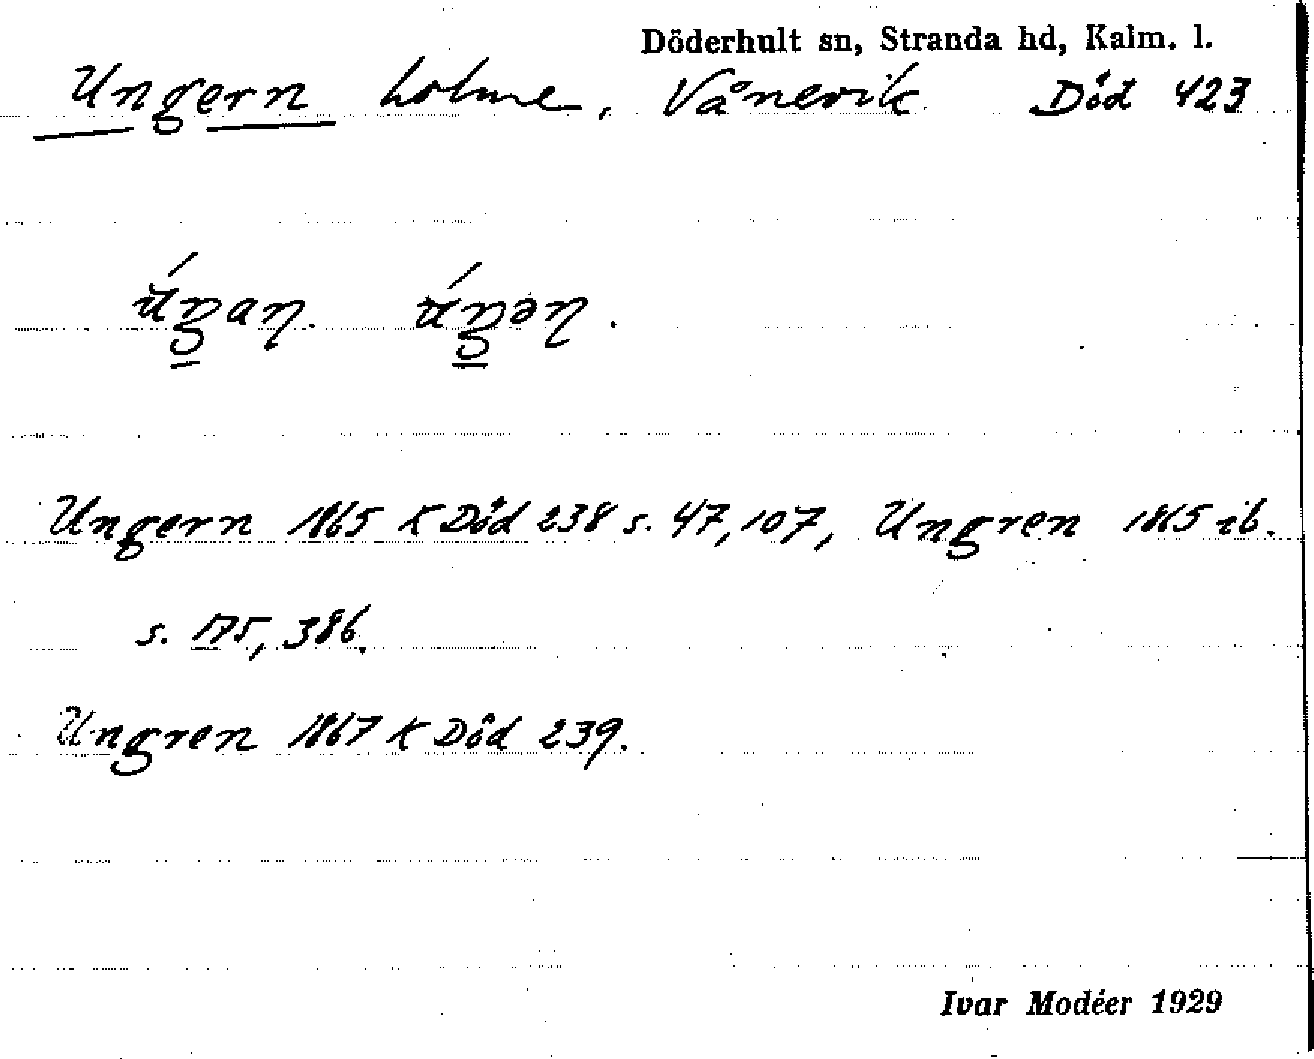 Döderhult sn, Stranda hd, Kalm. l.
Ungern holme, Vånevik Död 423
Ungern 1865 K Död 238 s. 47, 107, Ungren 1865 ib.
s. 175, 386.
Ungren 1867 K Död 239.
Ivar Modéer 1929